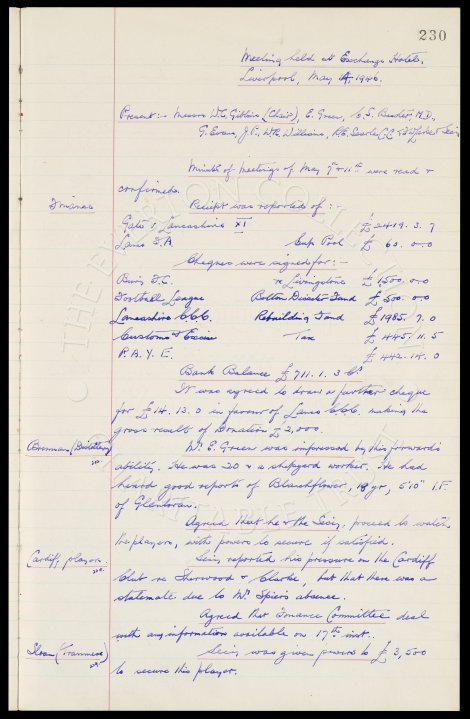 230
Meeting held at Exchange Hotel,
Liverpool, May 14, 1946.
Present:- Messrs W.C. Gibbins (Chair), E. Green, C.S. Baxter, M.D.,
G. Evans, J.P., W.R. Williams, R.E. Searle C.C. &
Minutes of meetings of May 7th & 11th were read &
confirmed.
Finance
Receipt was reported of:-
Gate v Lancashire XI £2419. 3. 7
Lancs F.A. Cup Pool £ 60. 0. 0
Cheques were signed for:-
Bury F.C. re Livingstone £1,500. 0. 0
Football League Bolton Disaster Fund £ 500. 0. 0
Lancashire C.C.C. Rebuilding Fund £1985. 7. 0
Customs & Excise Tax £445. 11. 5
P.A.Y.E. £442. 14. 0
Bank Balance £711. 1. 3
It was agreed to draw a further cheque
for £14. 13. 0 in favour of Lancs C.C.C. making the
gross result of Donation £2,000.
Brennan (Distillery)
Mr. E. Green was impressed by this forwards
ability. He was 20 & a shipyard worker. He had
heard good reports of Blanchflower, 18 yr, 5'10" I.F.
of Glentoran.
Agreed that he & the Secy, proceed to watch
the players, with powers to secure if satisfied.
Cardiff players
Secy, reported his pressure on the Cardiff
Club re Sherwood & Clarke, but that there was a
stalemate due to Mr. Spiers absence.
Agreed that Finance Committee deal
with any information available on 17th inst.
Sloan (Tranmere)
Secy, was given powers to £3,500
to secure this player.
THE EVERTON COLLECTION